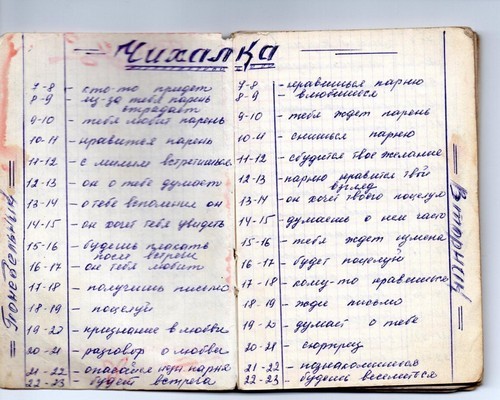 Чихалка
Понедельник
7-8 - кто-то придет
8-9 - из-за тебя парень
страдает
9-10 - тебя любит парень
10-11 - нравится парень
11-12 - с милым встретишься
12-13 - он о тебе думает
13-14 - о тебе вспомнил он
14-15 - он хочет тебя увидеть
15-16 - будешь плакать
после встречи
16-17 - он тебя любит
17-18 - получишь письмо
18-19 - поцелуй
19-20 - признание в любви
20-21 - разговор о любви
21-22 - опасайся парня
22-23 - будет встреча
Вторник
7-8 - нравишься парню
8-9 - влюбишься
9-10 - тебя ждет парень
10-11 - снишься парню
11-12 - сбудется твое желание
12-13 - парню нравится твой
взгляд
13-14 - он хочет твоего поцелуя
14-15 - думаешь о нем часто
15-16 - тебя ждет измена
16-17 - будет поцелуй
17-18 - кому-то нравишься
18-19 - жди письмо
19-20 - думает о тебе
20-21 - сюрприз
21-22 - познакомишься
22-23 - будешь веселиться